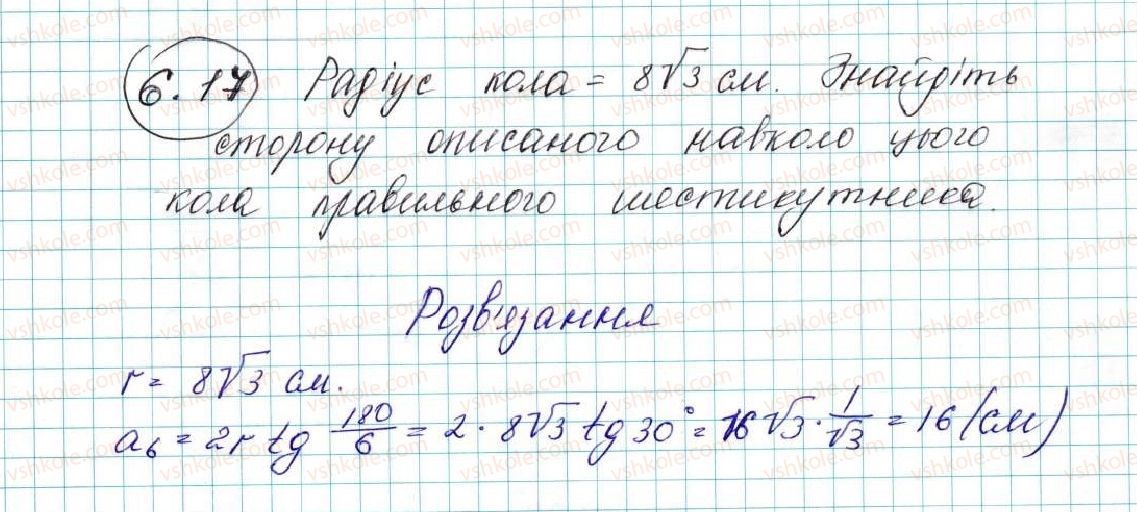 6.17 Радіус кола = 8√3 см. Знайдіть
сторону описаного навколо цього
кола правильного шестикутника.
Розв'язання
r = 8√3 см.
a₆ = 2r tg 180/6 = 2 · 8√3 tg 30° = 16√3 · 1/√3 = 16 (см)